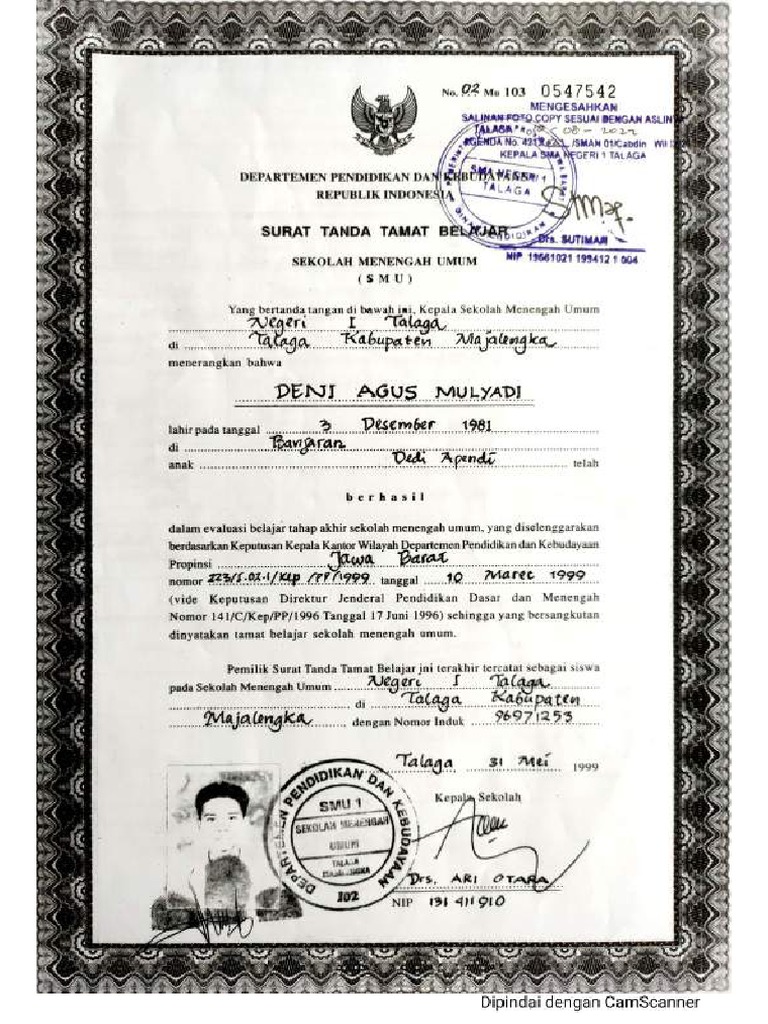 No. 02 Mu 103 0547542
MENGESAHKAN
SALINAN FOTO COPY SESUAI DENGAN ASLINYA
TALAGA
AGENDA No. 421 /SMAN 01/Cabdin Wil
KEPALA SMA NEGERI 1 TALAGA
SMA NEGERI 1
TALAGA
DINAS PENDIDIKAN
Drs. SUTIMAN
NIP 19661021 199412 1 004
DEPARTEMEN PENDIDIKAN DAN KEBUDAYAAN
REPUBLIK INDONESIA
SURAT TANDA TAMAT BELAJAR
SEKOLAH MENENGAH UMUM
( S M U )
Yang bertanda tangan di bawah ini, Kepala Sekolah Menengah Umum
Negeri I Talaga
di Talaga Kabupaten Majalengka
menerangkan bahwa
DENI AGUS MULYADI
lahir pada tanggal 3 Desember 1981
di Banjaran
anak Dedi Apendi telah
berhasil
dalam evaluasi belajar tahap akhir sekolah menengah umum, yang diselenggarakan
berdasarkan Keputusan Kepala Kantor Wilayah Departemen Pendidikan dan Kebudayaan
Propinsi Jawa Barat
nomor 223/I.02.1/Kep /PP/1999 tanggal 10 Maret 1999
(vide Keputusan Direktur Jenderal Pendidikan Dasar dan Menengah
Nomor 141/C/Kep/PP/1996 Tanggal 17 Juni 1996) sehingga yang bersangkutan
dinyatakan tamat belajar sekolah menengah umum.
Pemilik Surat Tanda Tamat Belajar ini terakhir tercatat sebagai siswa
pada Sekolah Menengah Umum Negeri I Talaga
di Talaga Kabupaten
Majalengka dengan Nomor Induk 96971253
Talaga 31 Mei 1999
Kepala Sekolah
DEPARTEMEN PENDIDIKAN DAN KEBUDAYAAN
SMU 1
SEKOLAH MENENGAH
UMUM
TALAGA
MAJALENGKA
102
Drs. ARI OTARA
NIP 131 411 910
Dipindai dengan CamScanner